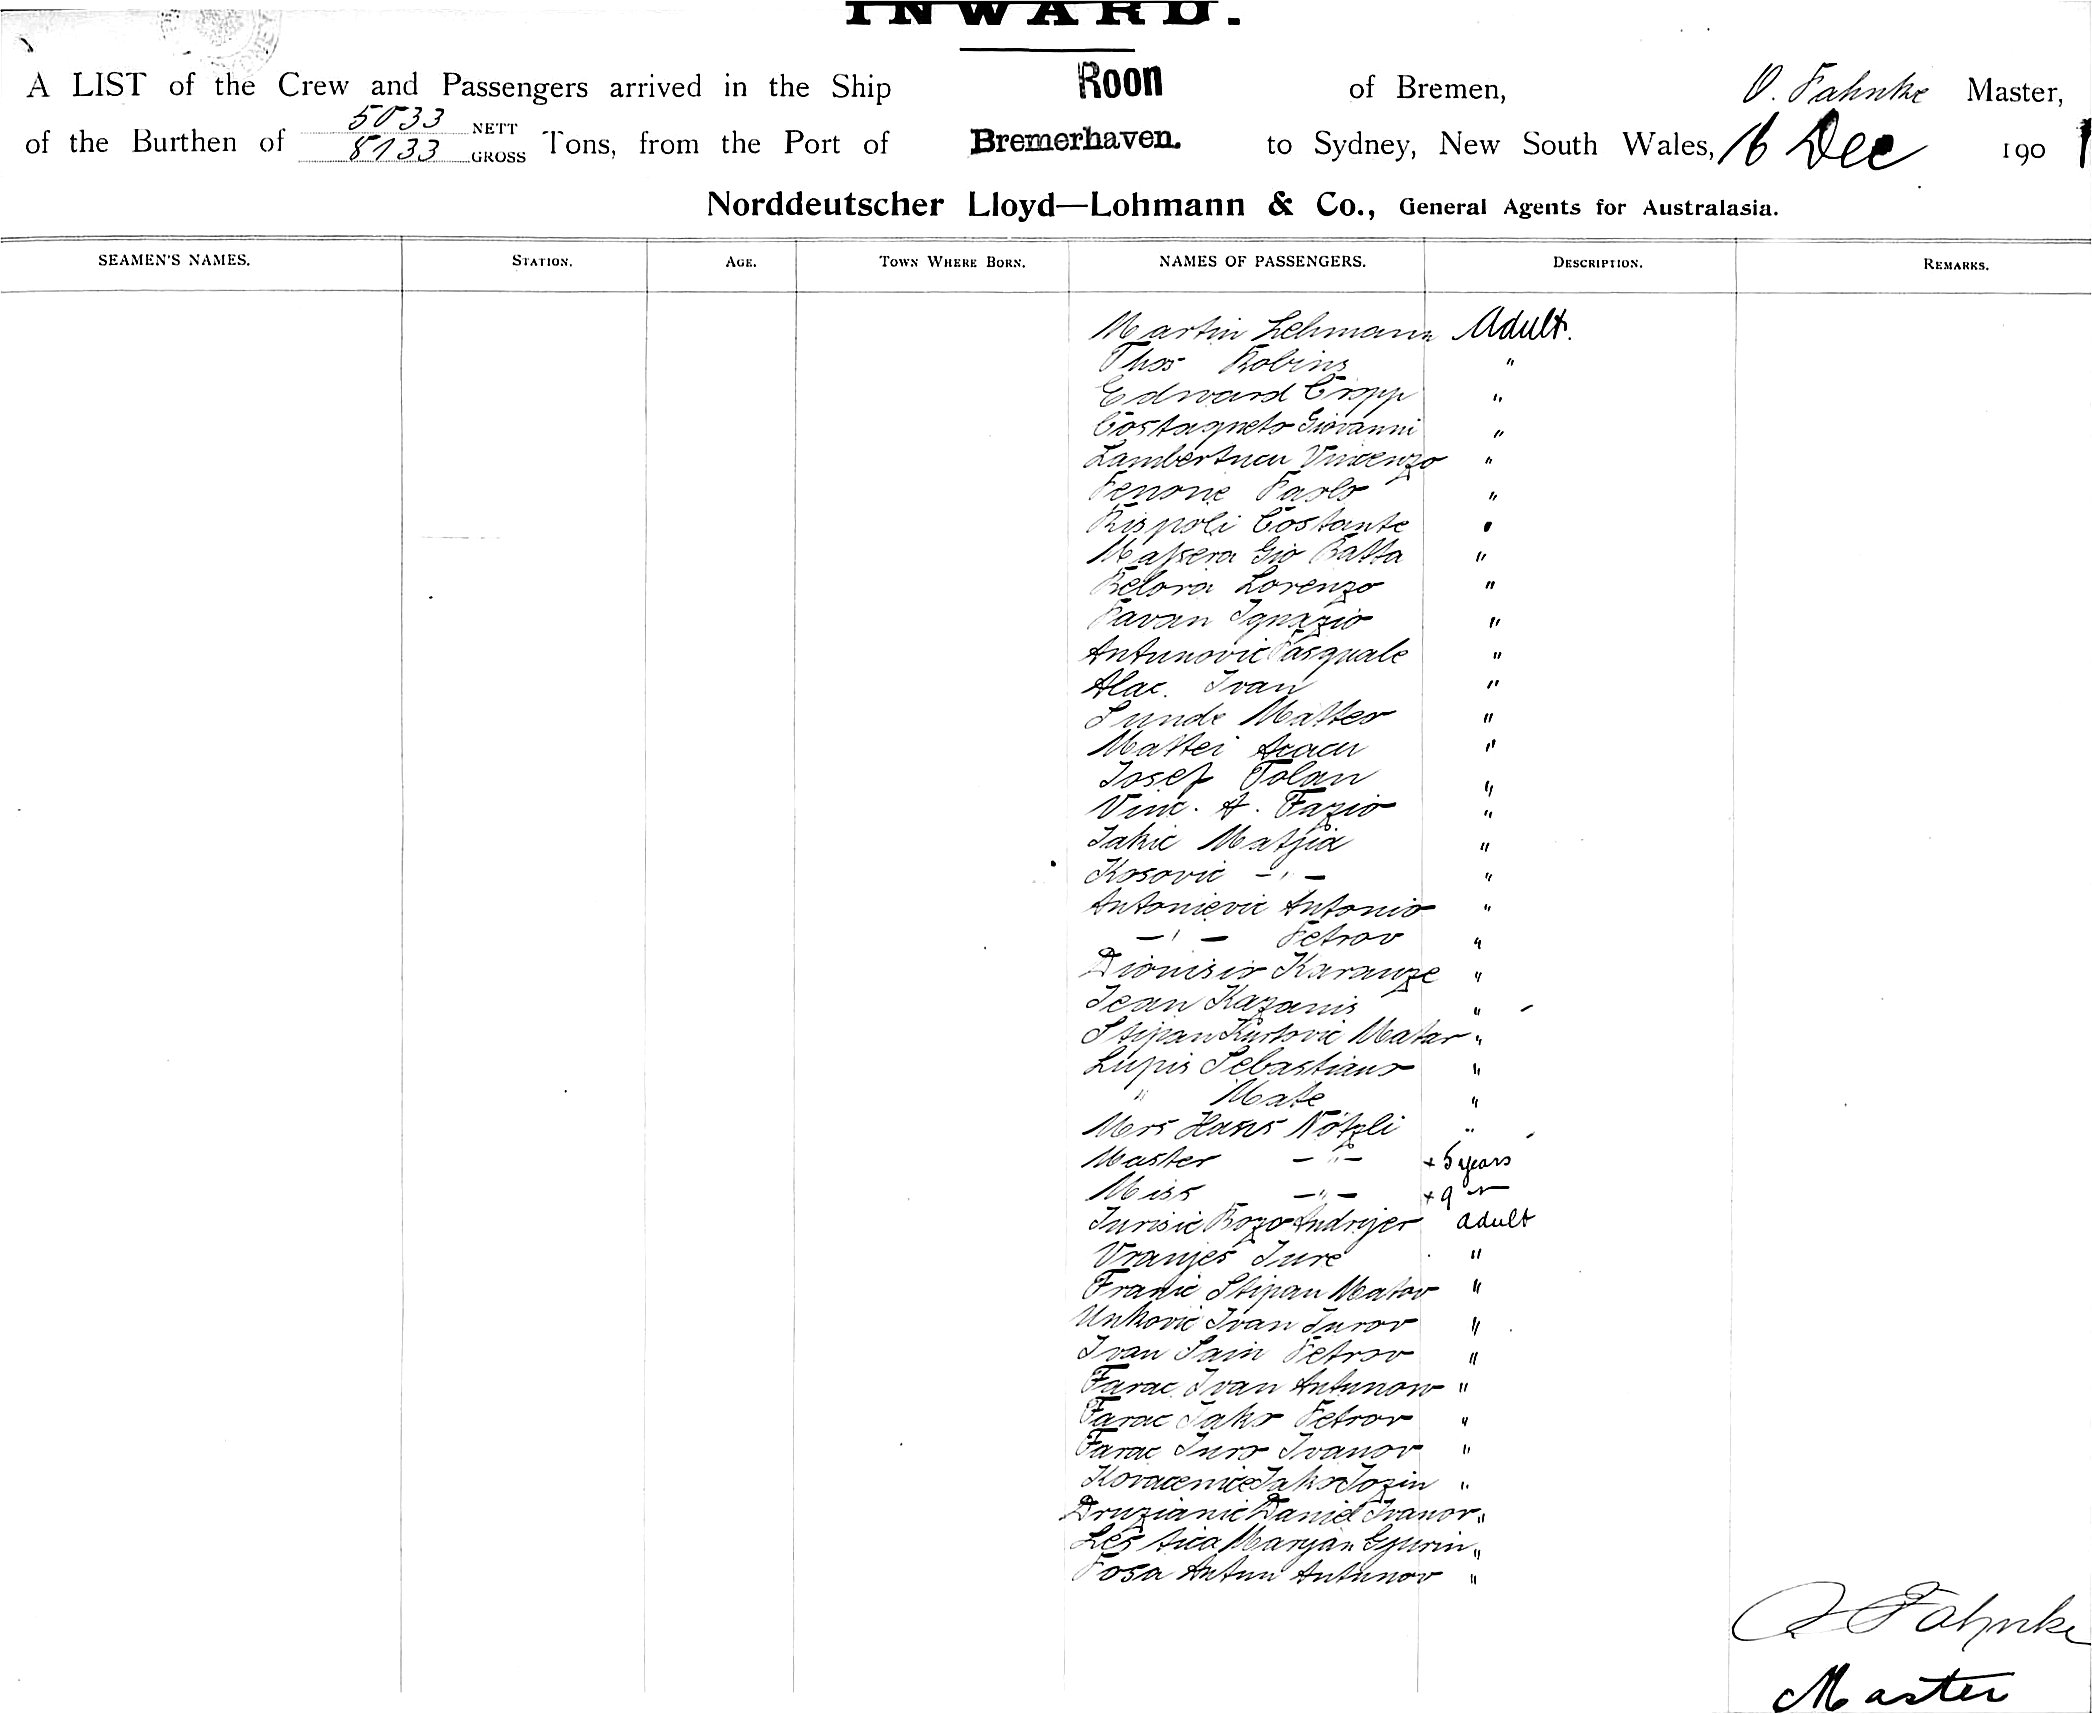 INWARD.
A LIST of the Crew and Passengers arrived in the Ship Roon of Bremen, O. Fahnke Master,
of the Burthen of 5033 NETT 8133 GROSS Tons, from the Port of Bremerhaven. to Sydney, New South Wales, 16 Dec 190
Norddeutscher Lloyd—Lohmann & Co., General Agents for Australasia.
SEAMEN'S NAMES. STATION. AGE. TOWN WHERE BORN. NAMES OF PASSENGERS. DESCRIPTION. REMARKS.
Martin Lehmann Adult.
Thos Robins "
Edward Cropp "
Costagneto Giovanni "
Vincenzo "
Fenone Paolo "
Rispoli Costante "
Massera Gio Batta "
Relova Lorenzo "
Pavan Ignazio "
Antunovic Pasquale "
Alac. Ivan "
Sunde Matteo "
Mattei "
Josef Tolan "
Vinc. A. Fazio "
Jakic Matjia "
Kosovic - " - "
Antonievic Antonio "
- " - Petrov "
Dionisio Karauze "
Jean Kazanis "
Stipan Kurtovic Matar "
Lupis Sebastiano "
" Mate "
Mrs Hans Nötzli "
Master - " - + 5 years
Miss - " - + 9 "
Jurisic Bozo Andrijer adult
Vranjes Jure "
Franic Stipan Matov "
Unkovic Ivan Jurov "
Ivan Sain Petrov "
Farac Ivan Antunow "
Farac Jako Petrov "
Farac Juro Ivanov "
Jako Jozin "
Druzianic Daniel Ivanov "
Marjan Gjurin "
Posa Antun Antunov "
Fahnke
Master